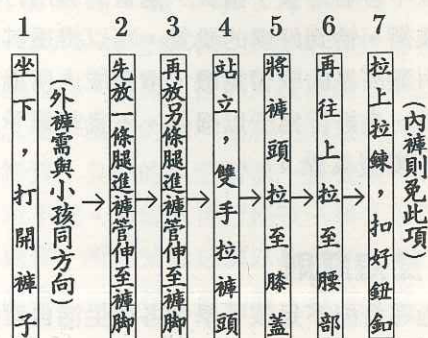 1
坐下，打開褲子
(外褲需與小孩同方向)
2
先放一條腿進褲管伸至褲脚
3
再放另條腿進褲管伸至褲脚
4
站立，雙手拉褲頭
5
將褲頭拉至膝蓋
6
再往上拉至腰部
7
拉上拉鍊，扣好鈕釦
(內褲則免此項)